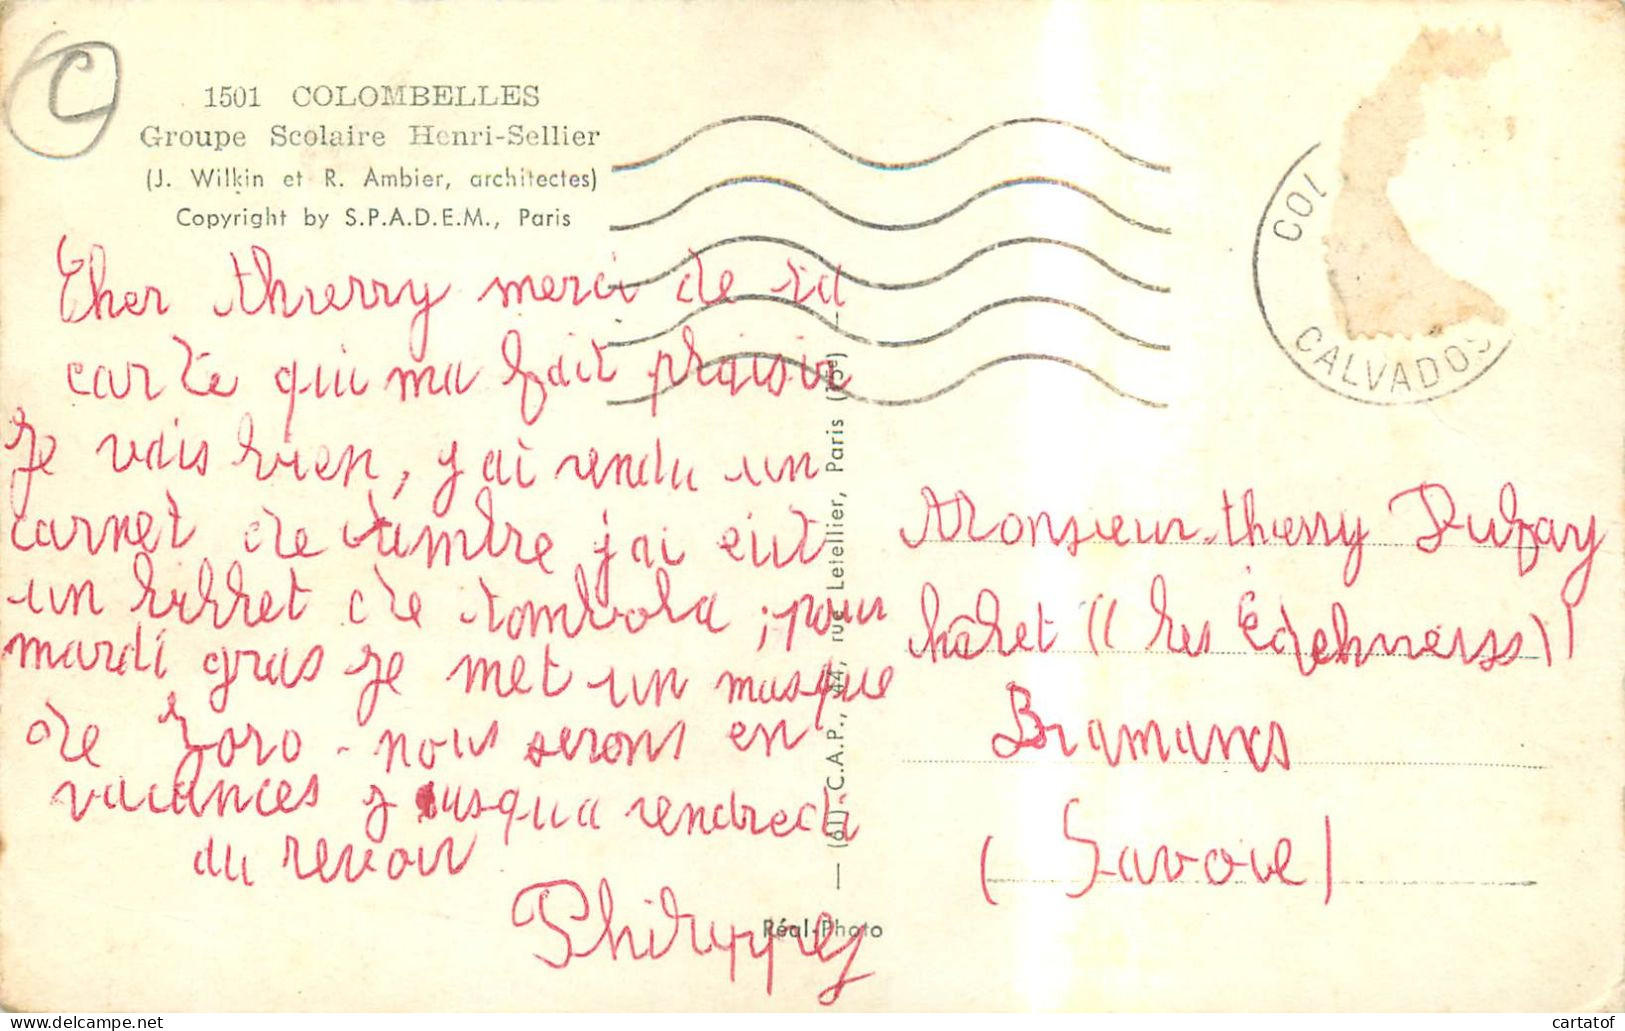 C
1501 COLOMBELLES
Groupe Scolaire Henri-Sellier
(J. Wilkin et R. Ambier, architectes)
Copyright by S.P.A.D.E.M., Paris
Cher thierry merci de ta
carte qui ma fait plaisir
Je vais bien, j'ai rendu un
carnet de timbre j'ai eut
un billet de tombola ; pour
mardi gras je met un masque
de Zoro - nous serons en
vacances jusqua vendredi
au revoir
Philippe
— (61) C.A.P., 44, rue Letellier, Paris (15e) —
Réal-Photo
COL
CALVADOS
Monsieur thierry Dufay
châlet "les
Bramans
(Savoie)
www.delcampe.net
cartatof